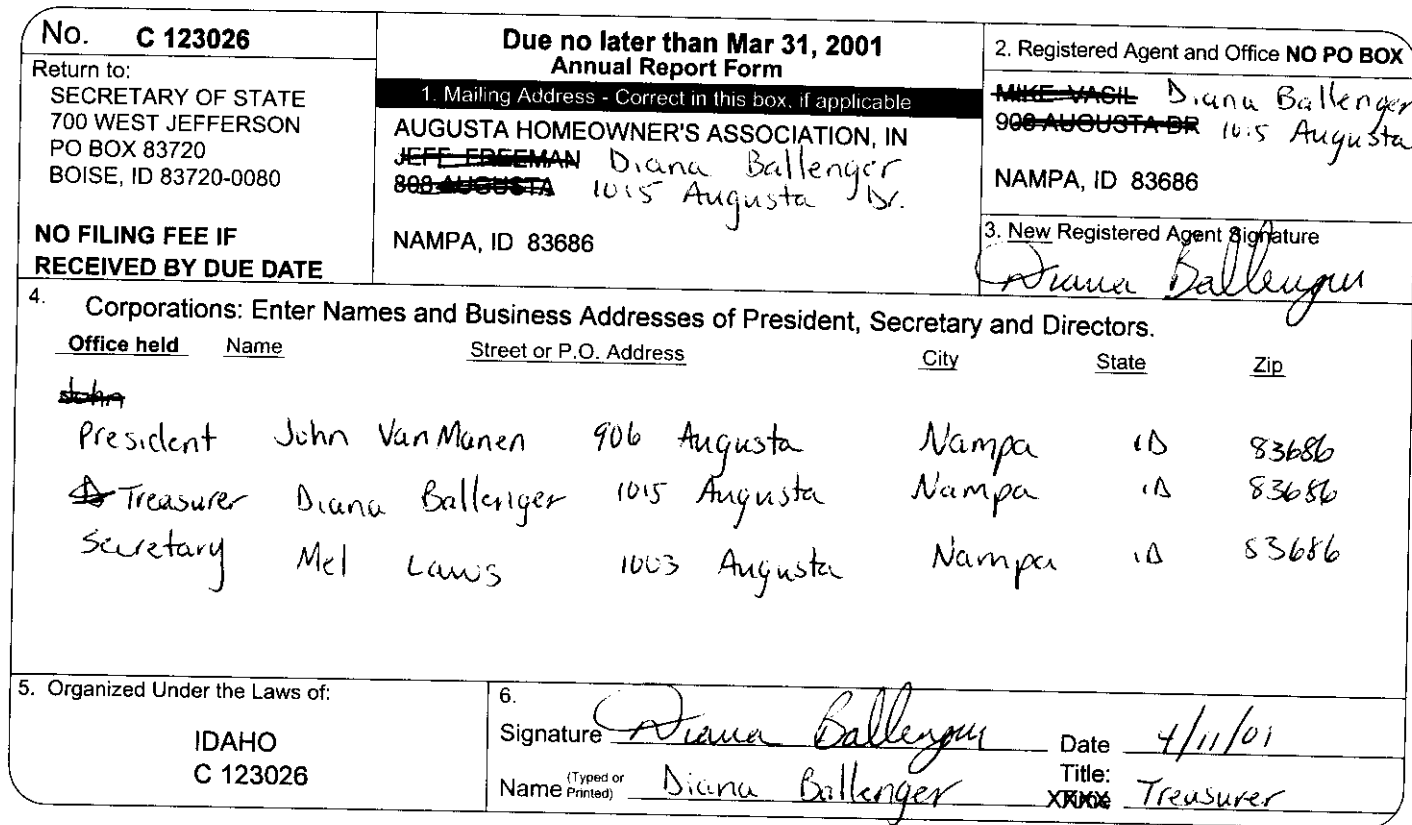 No. C 123026
Return to:
SECRETARY OF STATE
700 WEST JEFFERSON
PO BOX 83720
BOISE, ID 83720-0080
NO FILING FEE IF
RECEIVED BY DUE DATE
Due no later than Mar 31, 2001
Annual Report Form
1. Mailing Address - Correct in this box, if applicable
AUGUSTA HOMEOWNER'S ASSOCIATION, IN
JEFF FREEMAN Diana Ballenger
808 AUGUSTA 1015 Augusta Dr.
NAMPA, ID 83686
2. Registered Agent and Office NO PO BOX
MIKE VASIL Diana Ballenger
908 AUGUSTA DR 1015 Augusta
NAMPA, ID 83686
3. New Registered Agent Signature
Diana Ballenger
4. Corporations: Enter Names and Business Addresses of President, Secretary and Directors.
Office held Name Street or P.O. Address City State Zip
John
President John VanManen 906 Augusta Nampa ID 83686
Treasurer Diana Ballenger 1015 Augusta Nampa ID 83686
Secretary Mel Laws 1003 Augusta Nampa ID 83686
5. Organized Under the Laws of:
IDAHO
C 123026
6.
Signature Diana Ballenger Date 4/11/01
Name (Typed or Printed) Diana Ballenger Title: Treasurer